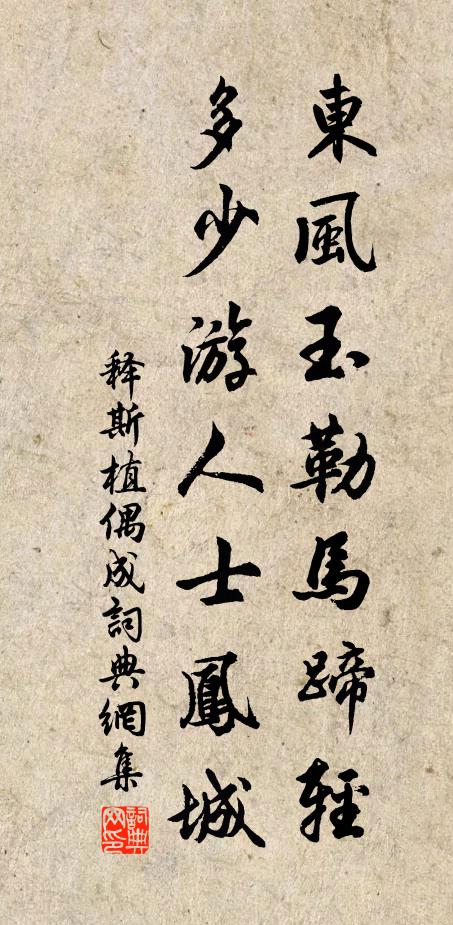 東風玉勒馬蹄輕
多少游人士鳳城
释斯植偶成詞典網集
詞典网印